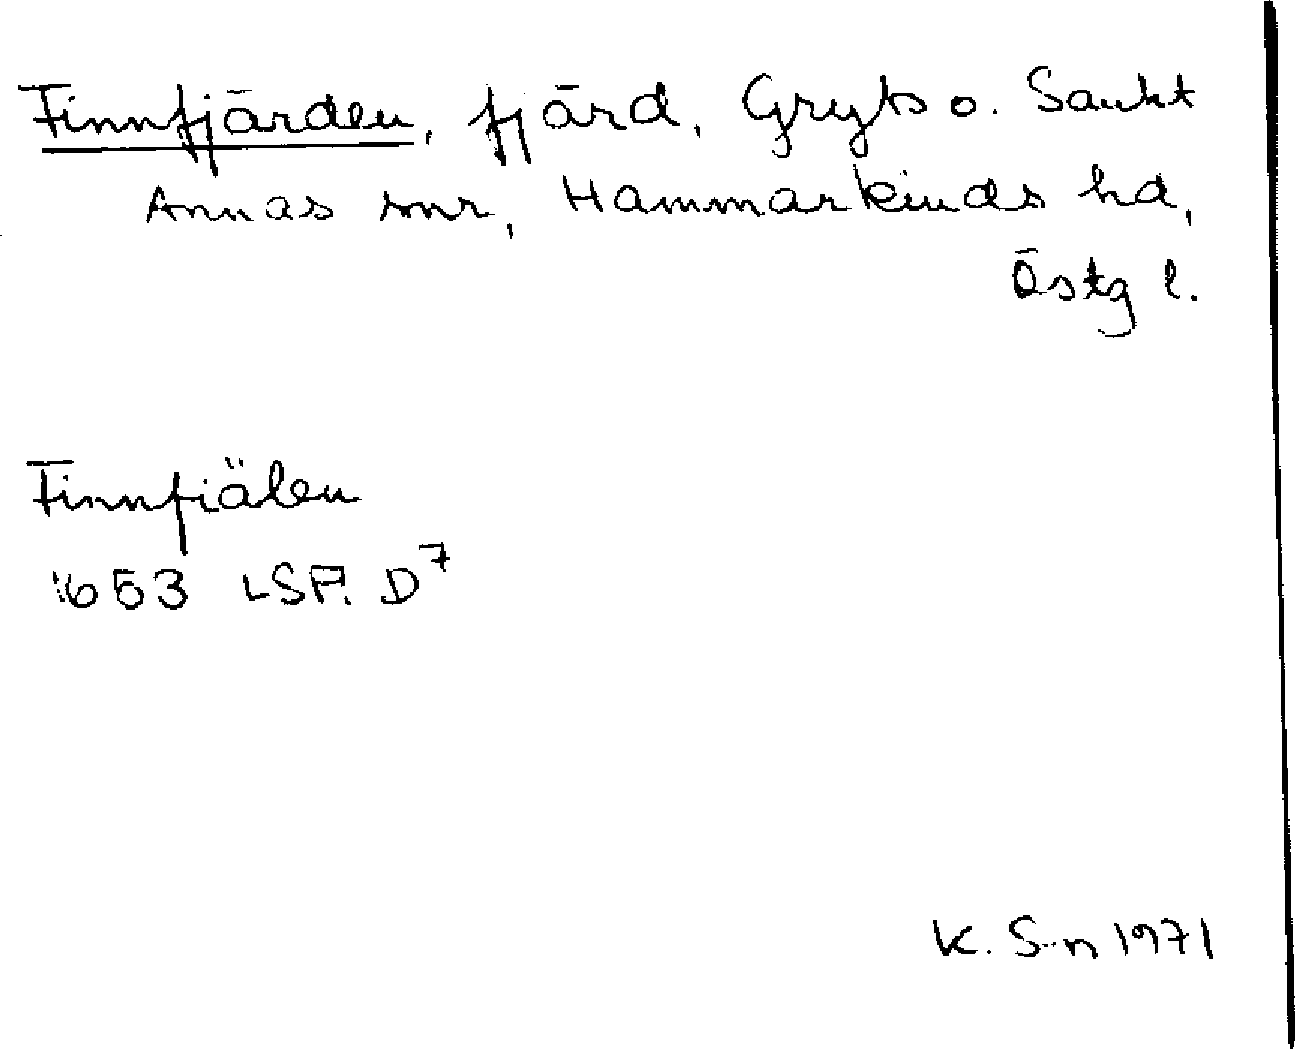 Finnfjärden, fjärd, Gryts o. Sankt
Annas snr, Hammarkinds hd,
Östg l.
Finnfiälen
1653 LSP. D7
K. S-n 1971